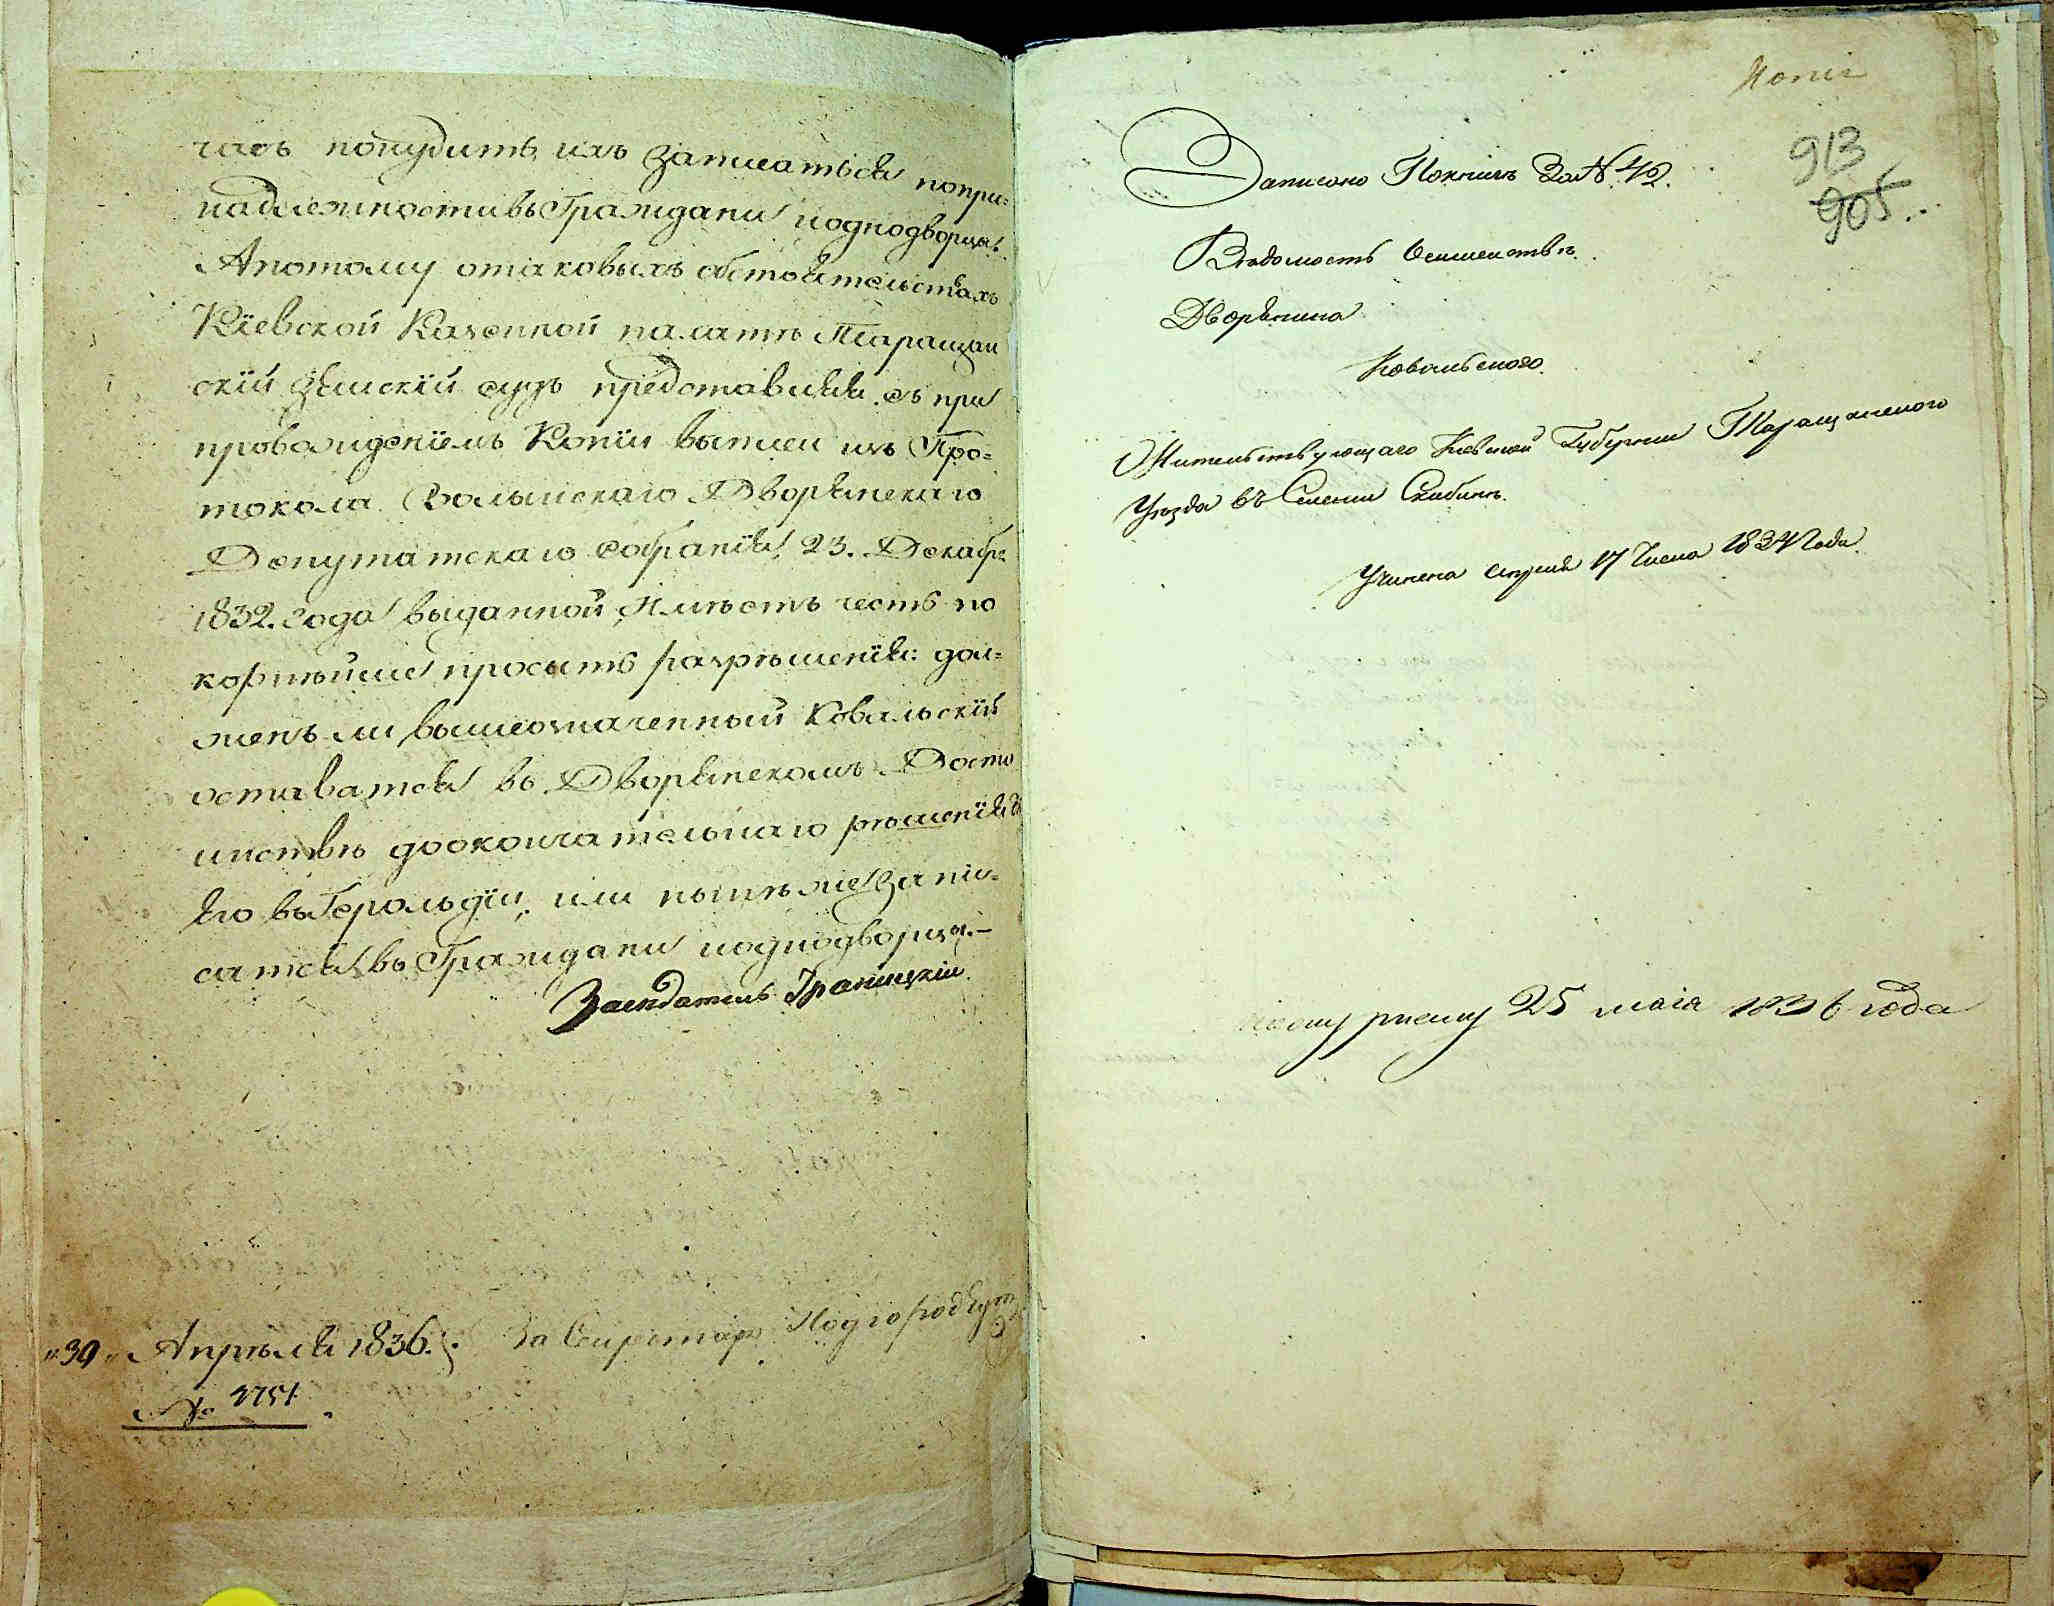 часъ понудить ихъ записаться попри=
надлежности въ Граждани иоднодворцы.
Апотому отаковыхъ обстоятельствахъ
Кіевской Казенной палатѣ Таращан
скій Земскій судъ представляя съ при
провожденіемъ Копіи выписи изъ Про=
токола Волынскаго Дворянскаго
Депутатскаго собранія 23. Декабр.
1832. года выданной, Имѣетъ честь по
корнѣйше просить разрѣшенія: дол=
женъ ли вышеозначенный Ковальскій
оставатся въ Дворянскомъ Досто
инствѣ доокончательнаго рѣшенія
его въ Герольдіи, или нынѣ же запи=
сатся въ Граждани иоднодворцы.—
Засѣдатель Границкій
"30" Апрѣля 1836. За Секретаря
№ 2751
Копія
913
905
Записано Покнигѣ За № 42.
Вѣдомость Осемействѣ
Дворянина
Ковальского.
Жительствующаго Кіевской Губерніи Таращанского
Уѣзда въ Селеніи Скибинѣ.
Учинена Апреля 17 Числа 1834 Года.
25 маія 1836 года